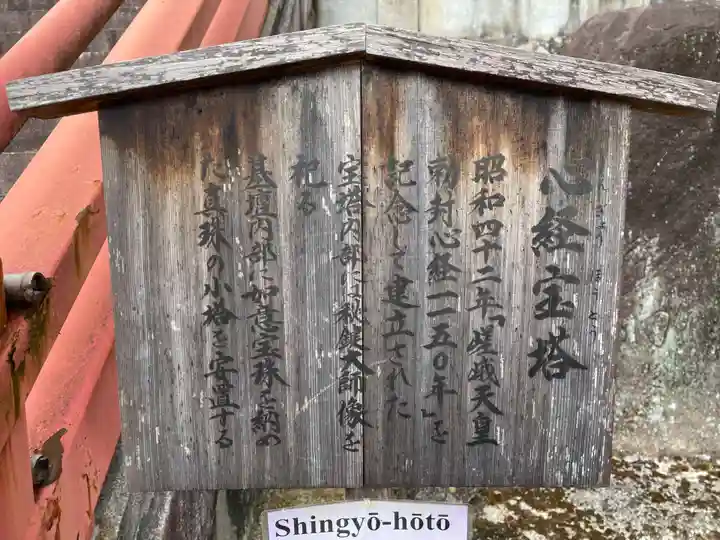 心経宝塔
しんぎょうほうとう
昭和四十二年「嵯峨天皇
勅封心経一一五〇年」を
記念して建立された
宝塔内部には秘鍵大師像を
祀る
基壇内部に如意宝珠を納め
た真珠の小塔を安置する
Shingyō-hōtō